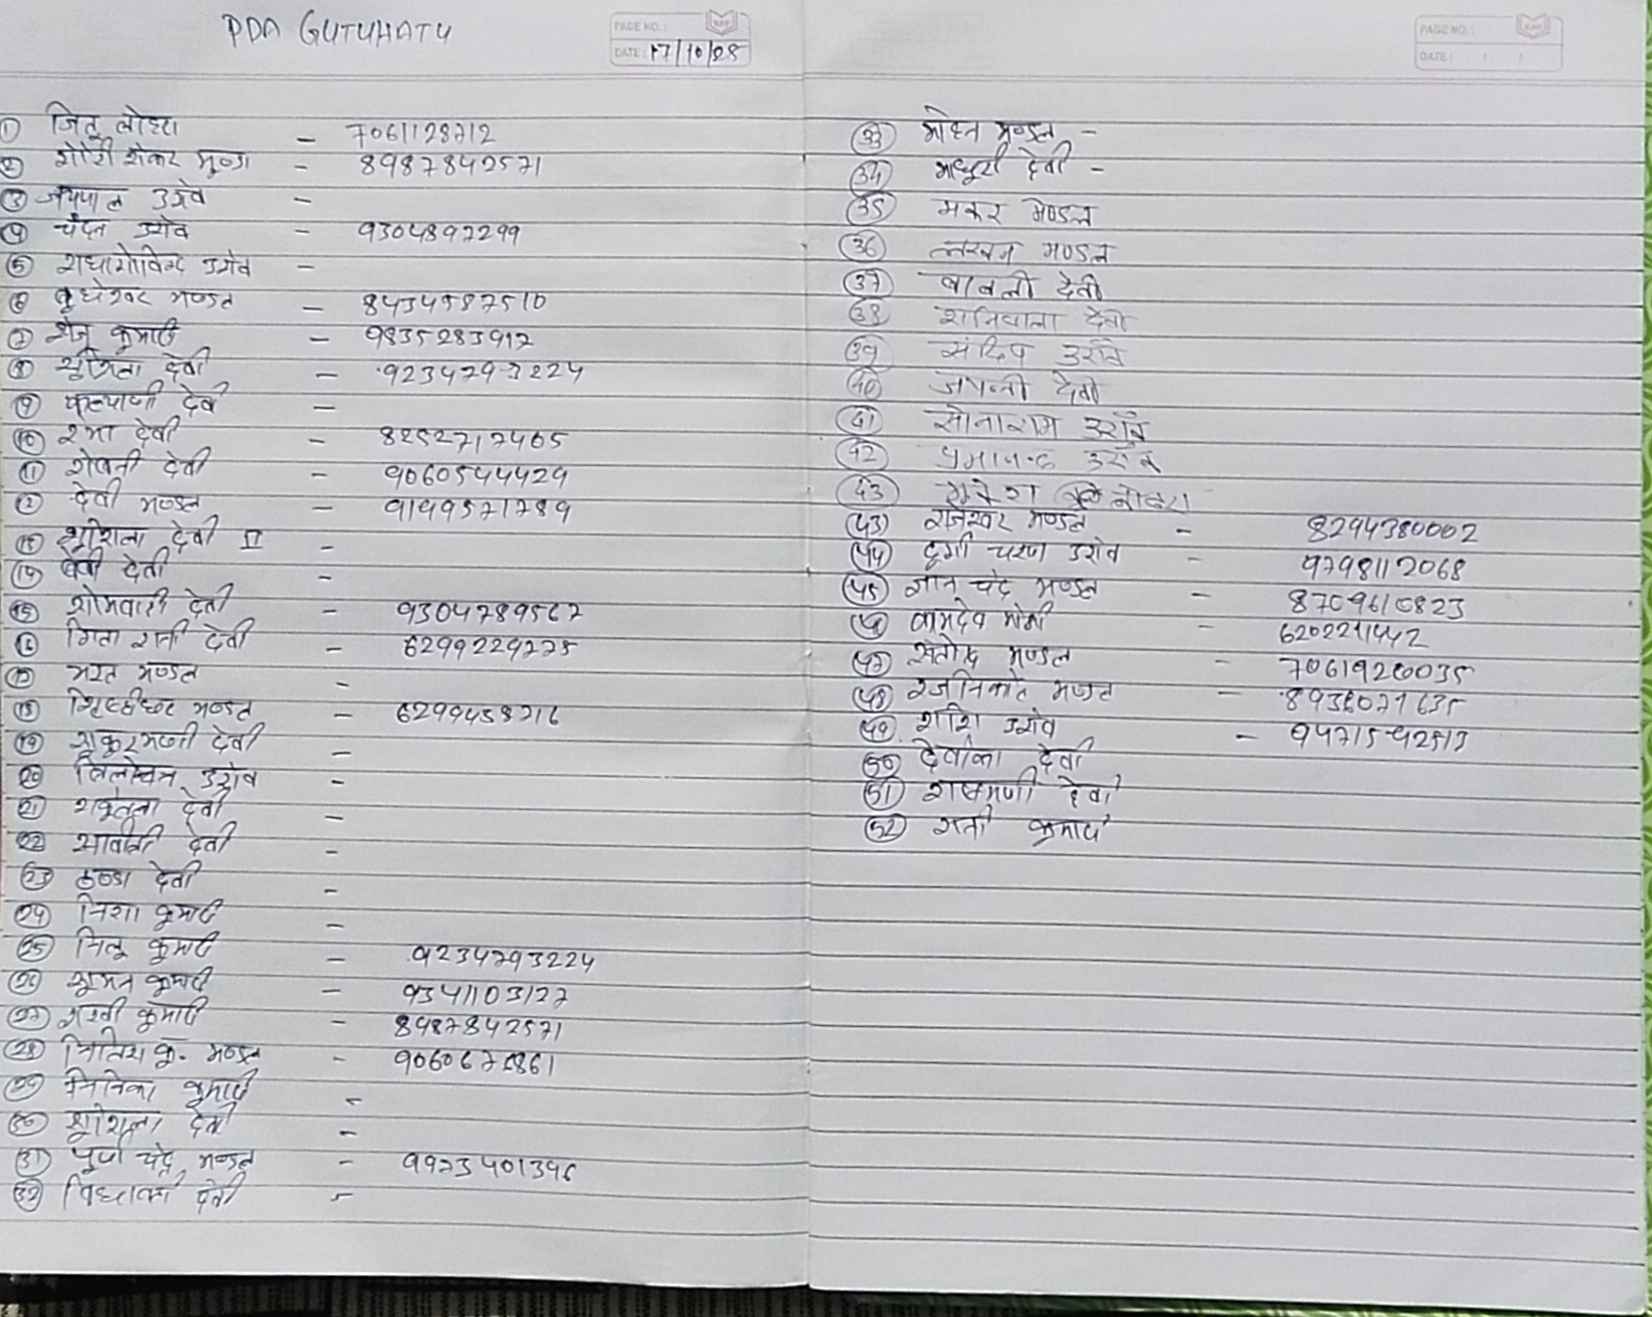 PDA GUTUHATU
PAGE NO.:
DATE: 17/10/25
① जितु लोहरा - 7061128712
② गौरी शंकर मुण्डा - 8987842571
③ जयपाल उराँव -
④ चंदन उराँव - 9304897299
⑤ राधागोविन्द उराँव -
⑥ बुधेश्वर मण्डल - 8434587510
⑦ कुमारी - 9835283912
⑧ देवी - 9234793224
⑨ कल्याणी देवी -
⑩ रमा देवी - 8252717405
⑪ शेवन्ती देवी - 9060544429
⑫ देवी मण्डल - 9199571789
⑬ शुशिला देवी II -
⑭ बेबी देवी -
⑮ शोमवारी देवी - 9304789567
⑯ गिता रानी देवी - 6299229775
⑰ भरत मण्डल -
⑱ मण्डल - 6299458716
⑲ शुकुरमणी देवी -
⑳ त्रिलोचन उराँव -
㉑ शकुंतला देवी -
㉒ सावित्री देवी -
㉓ ठण्डा देवी -
㉔ निशा कुमारी -
㉕ निलू कुमारी - 9234793224
㉖ सुमन कुमारी - 9341103127
㉗ कुमारी - 8987842571
㉘ नितिश कु. मण्डल - 9060676861
㉙ कुमारी -
㉚ शुशिला देवी -
㉛ पुर्ण चंद्र मण्डल - 9973401396
㉜ देवी -
PAGE NO.:
DATE: / /
㉝ मोहन मण्डल -
㉞ माधुरी देवी -
㉟ मकर मण्डल
㊱ लखन मण्डल
㊲ देवी
㊳ शनिवाला देवी
㊴ संदिप उराँव
㊵ जयन्ती देवी
㊶ सोनाराम उराँव
㊷ उराँव
㊸ लोहरा
(43) राजेश्वर मण्डल - 8294380002
(44) दुर्गा चरण उराँव - 9798112068
(45) ज्ञान चंद मण्डल - 8709610823
बामदेव - 6202291442
(47) मण्डल - 7061920035
(48) रजनिकांत मण्डल - 8936079635
(49) शशि उराँव - 9471592513
(50) देवीका देवी
(51) देवी
(52) कुमारी